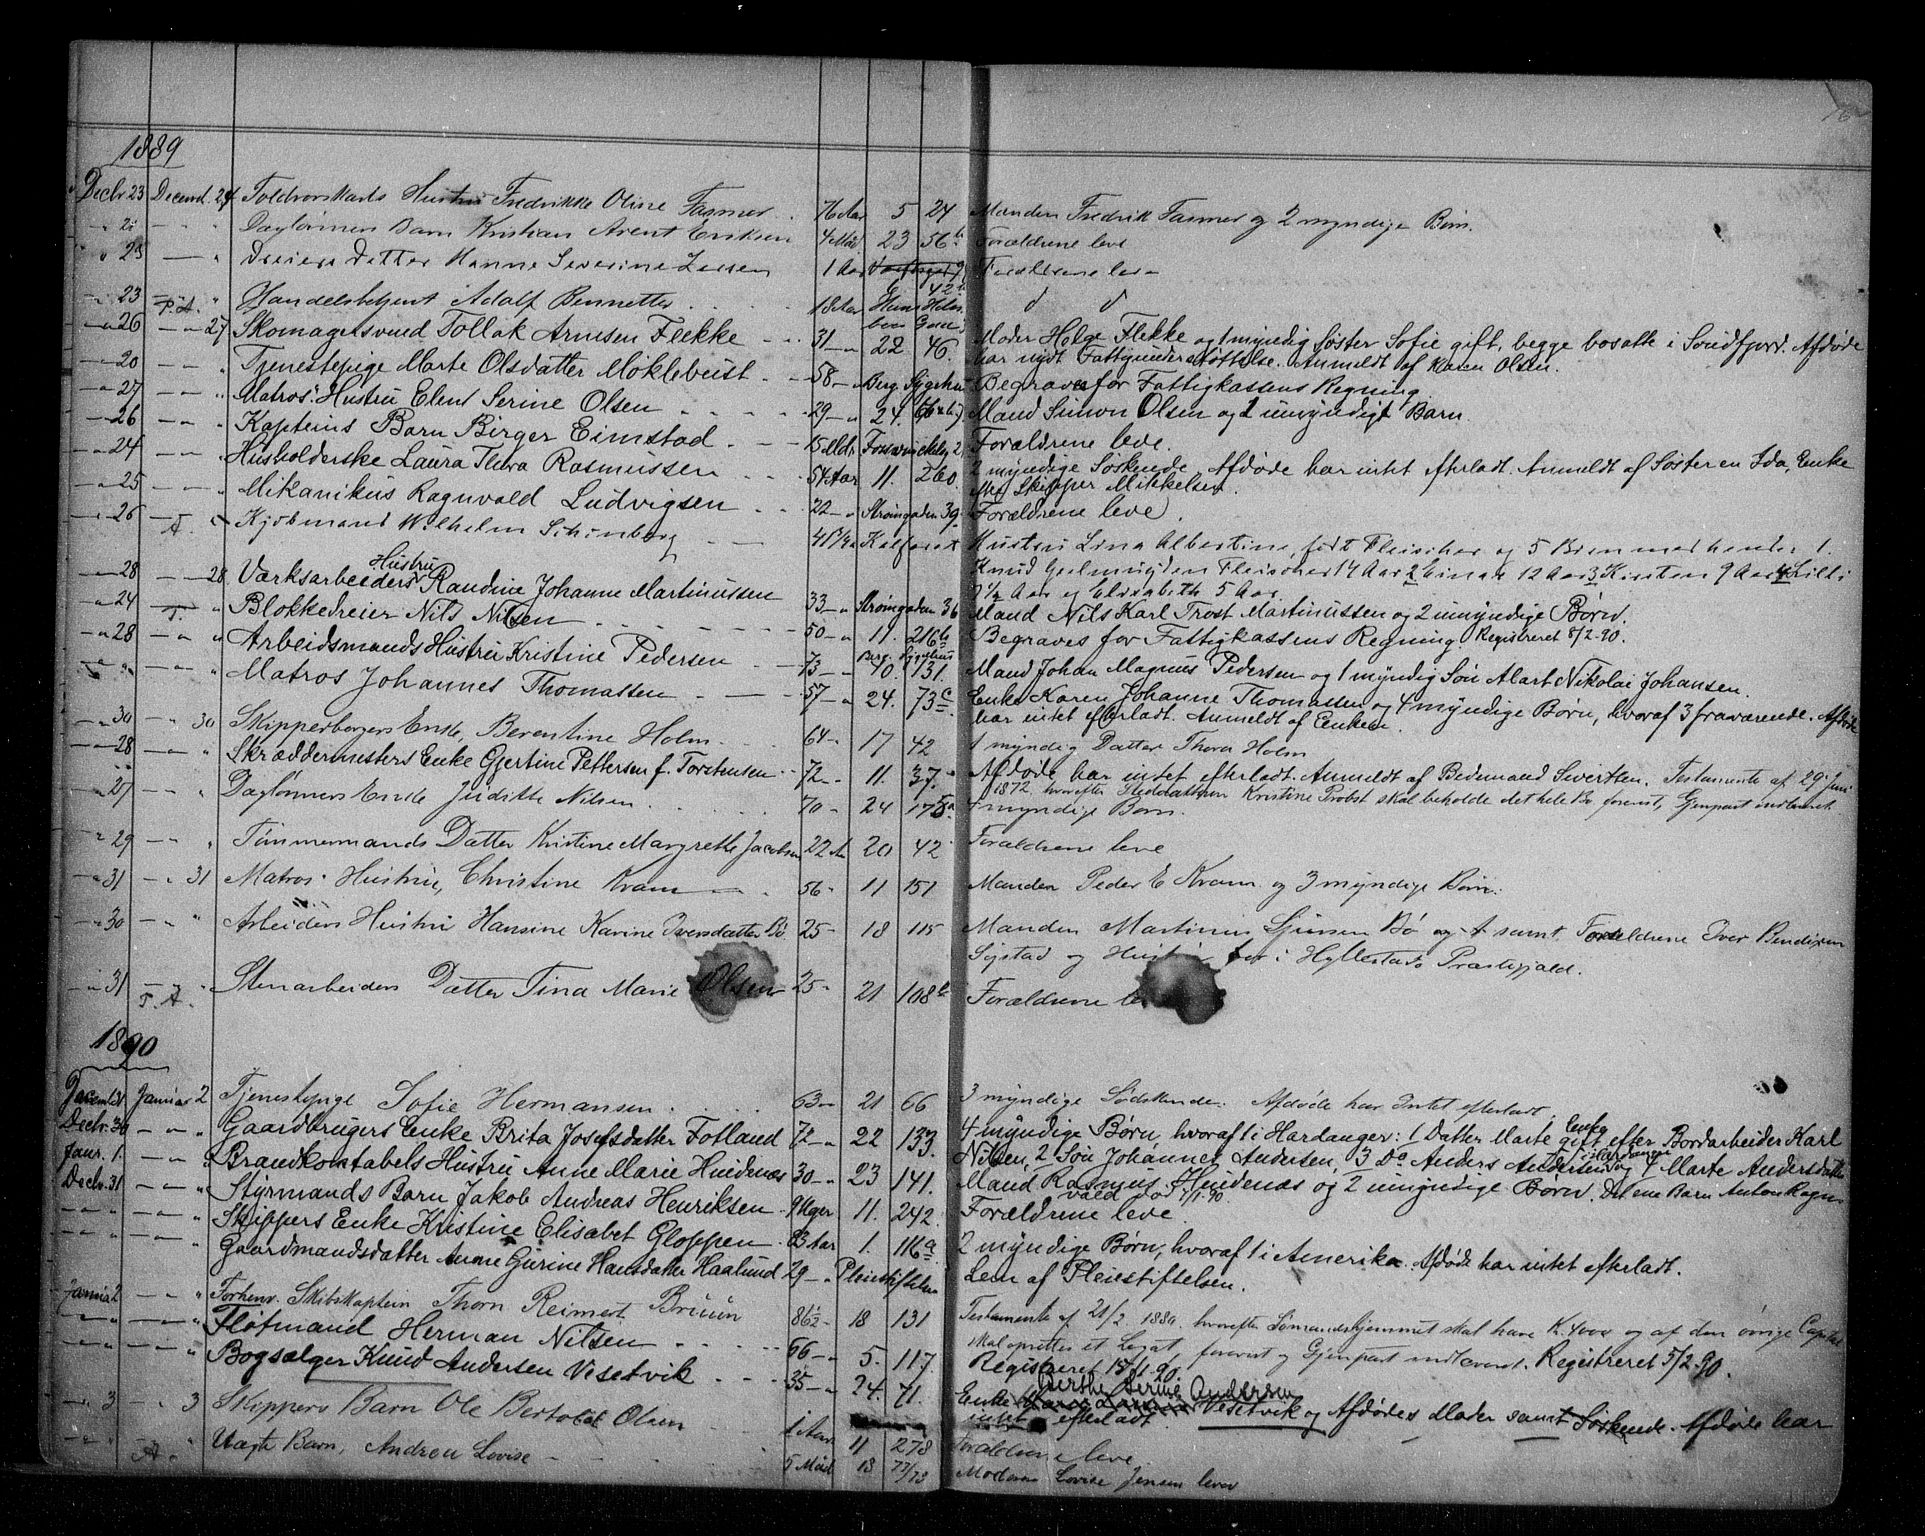 16
1889
Decbr 23 Decemb. 24 Toldvorskarls Hustru Fredrikke Oline Fasmer. 76 Aar 5 24 Manden Fredrik Fasmer og 2 myndige Børn.
" 21 — " " Daglønners Barn Kristian Arent Eriksen 4 Mdr 23 56b Forældrene leve
" " 23 — " Dreiers Datter Hanne Severine 1 Aar Forældrene leve
" 23 F.A. " Handelsbetjent Adolf Bennetter 18 Aar d d
" 26 — " 27 Skomagersvend Tollak Arnesen Flekke — 31 — " 22 46. Moder Helge Flekke og 1 myndig Søster Sofie gift, begge bosatte i Søndfjord. Afdøde
har nydt Fattigunderstøttelse. Anmeldt af Karen Olsen.
" 20 — " " Tjenestepige Marte Olsdatter Møklebust. 58 — " Berg. Sygehus Begraves for Fattigkassens Regning.
" 27 — " " Matros' Hustru Elent Serine Olsen 29 — " 24. Mand Simon Olsen og 1 umyndigt Barn.
" 26 — " " Kapteins Barn Birger Eimstad. 15 Mdr. 2 Forældrene leve.
" 24 — " " Husholderske Laura Thea Rasmussen 54 Aar 11. 260. 2 myndige Søskende. Afdøde har intet efterladt. Anmeldt af Søsteren Ida, Enke
efter Skipper Mikkelsen.
" 25 — " " Mikanikus Ragnvald Ludvigsen 22 — " Strømgaden 39. Forældrene leve.
" 26 — A. " Kjøbmand Wilhelm Schönberg Kalfaret Hustru Lina Albertine, født Fleischer og 5 Børn med hende: 1.
Knud Geelmuyden Fleischer 14 Aar 2 Einar 12 Aar 3 Kirsten 9 Aar 4 Lilli
7½ Aar og Elisabeth 5 Aar.
" 28 — " 28 Værksarbeiders Hustru Randine Johanne Martinussen 33 — " Strømgaden 36 Mand Nils Karl Trost Martinussen og 2 umyndige Børn.
" 24 T. " Blokkedreier Nils Nilsen 50 — " 11. 216b Begraves for Fattigkassens Regning. Registreret 8/2-90.
" 28 — " " Arbeidsmands Hustru Kristine Pedersen 73 — " Berg. Sygehus 40 131. Mand Johan Magnus Pedersen og 1 myndig Søn Alart Nikolai Johansen.
" " — " Matros Johannes Thomassen 57 — " 24. 73c. Enke Karen Johanne Thomassen og 4 myndige Børn, hvoraf 3 fraværende. Afdøde
har intet efterladt. Anmeldt af Enken.
" 30 — " 30 Skipperborgers Enke, Berentine Holm. 64 - 17 42 1 myndig Datter Thora Holm
" 28 — " " Skræddermesters Enke Gjertine Pettersen f. Torstensen 72 — " 11. 37. Afdøde har intet efterladt. Anmeldt af Bedemand Sivertsen. Testamente af 29' Juni
1872, hvorefter Kristine Probst skal beholde det hele Bo forevist, Gjenpart indleveret.
" 27 — " " Daglønners Enke Juditte Nilsen. 70 — " 24 175a 4 myndige Børn.
" 29 — " " Tømmermands Datter Kristine Margrethe Jacobsen 22 Aar 20 42 Forældrene leve
" 31 — " 31 Matros' Hustru, Christine Kram 56 - 11 151 Manden Peder E Kram og 3 myndige Børn.
" 30 — " " Arbeiders Hustru Hansine Karine Iversdatter Bø 25 - 18 115 Manden Martinus Sjursen Bø og samt Forældrene Iver Bendixen
Systad og Hustru i Hyllestads Præstegjæld.
" 31 — " " T. A. Stenarbeiders Datter Tina Marie Olsen 25 - 21 108b Forældrene leve
1890
Decembr 31 Januar 2 Tjenestepige Sofie Hermansen. 63 — 21 66 3 myndige Sødskende. Afdøde har Intet efterladt.
Decbr. 30 — " " Gaardbrugers Enke Brita Josefsdatter Fotland 72 — " 22 133. 4 myndige Børn, hvoraf 1 i Hardanger: 1 Datter Marte Enke gift efter Bordarbeider Karl
Nilsen, 2 Søn Johannes Andersen, 3 Do Anders Andersen i Hardanger og 4 Marte Andersdatter
Janr. 1. — " " Brandkonstabels Hustru Anne Marie Hindenæs 30 — " 23 141. Mand Rasmus Hindenæs og 2 umyndige Børn. Det ene Barn Anton Ragn-
vald død 7/1-90.
Decbr. 31 — " " Styrmands Barn Jakob Andreas Henriksen 9 Uger 11. 242. Forældrene leve.
" " — " " Skippers Enke Kristine Elisabet Gloppen 83 Aar 1. 116a 2 myndige Børn, hvoraf 1 i Amerika. Afdøde har intet efterladt.
" " — " " Gaardmandsdatter Anne Gurine Hansdatter Haalund 29 — " Pleiestiftelsen Lem af Pleiestiftelsen.
Januar 2 — " " Forhenv. Skibskaptein Thorn Reimert Bruun 86½ - 18 131 Testamente af 21/2 1880. hvorefter Sømandshjemmet skal have K. 4000 og af den øvrige Capital
skal oprettes et Legat, forevist og Gjenpart indleveret. Registreret 5/2-90.
" " — " " Fløtmand Herman Nilsen 66 — " 5. 117. Registreret 15/1-90.
" " — " " Bogsælger Knud Andersen Vesetvik 35 — " 24. 71. Enke Berthe Serine Andersen Vesetvik og Afdødes Moder samt Søskende. Afdøde har
intet efterladt
" 3 — " 3 Skippers Barn Ole Bertolat Olsen 1 Aar 11 278 Forældrene leve.
" " A. " Uægte Barn, Andrea Lovise 5 Mdr 13 77/73 Moderen Lovise Jensen lever